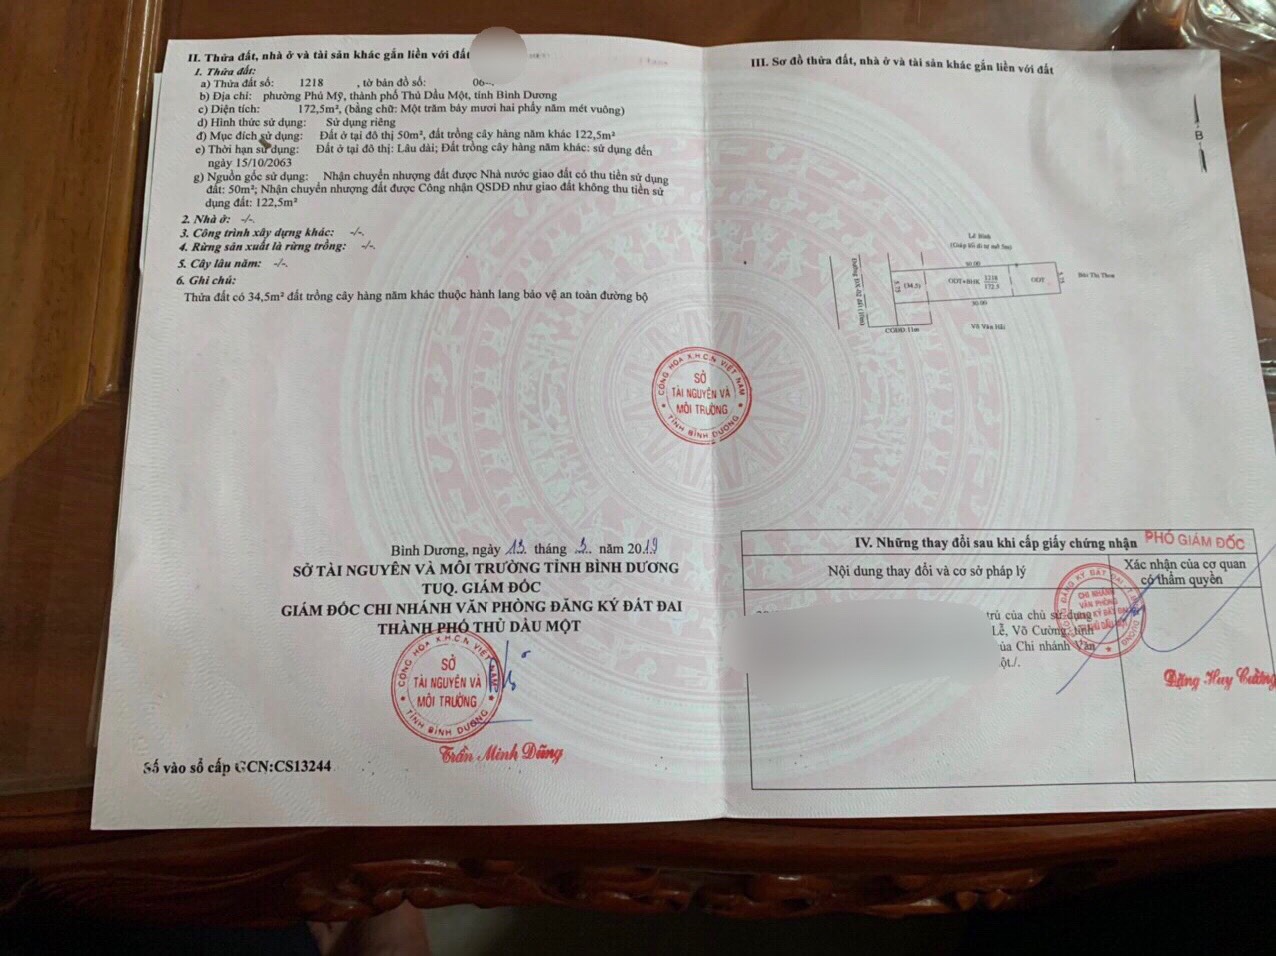 II. Thửa đất, nhà ở và tài sản khác gắn liền với đất
1. Thửa đất:
a) Thửa đất số: 1218 , tờ bản đồ số: 06-.
b) Địa chỉ: phường Phú Mỹ, thành phố Thủ Dầu Một, tỉnh Bình Dương
c) Diện tích: 172,5m², (bằng chữ: Một trăm bảy mươi hai phẩy năm mét vuông)
d) Hình thức sử dụng: Sử dụng riêng
đ) Mục đích sử dụng: Đất ở tại đô thị 50m², đất trồng cây hàng năm khác 122,5m²
e) Thời hạn sử dụng: Đất ở tại đô thị: Lâu dài; Đất trồng cây hàng năm khác: sử dụng đến
ngày 15/10/2063
g) Nguồn gốc sử dụng: Nhận chuyển nhượng đất được Nhà nước giao đất có thu tiền sử dụng
đất: 50m²; Nhận chuyển nhượng đất được Công nhận QSDĐ như giao đất không thu tiền sử
dụng đất: 122,5m²
2. Nhà ở: -/-.
3. Công trình xây dựng khác: -/-.
4. Rừng sản xuất là rừng trồng: -/-.
5. Cây lâu năm: -/-.
6. Ghi chú:
Thửa đất có 34,5m² đất trồng cây hàng năm khác thuộc hành lang bảo vệ an toàn đường bộ
Bình Dương, ngày 13 tháng 3 năm 2019
SỞ TÀI NGUYÊN VÀ MÔI TRƯỜNG TỈNH BÌNH DƯƠNG
TUQ. GIÁM ĐỐC
GIÁM ĐỐC CHI NHÁNH VĂN PHÒNG ĐĂNG KÝ ĐẤT ĐAI
THÀNH PHỐ THỦ DẦU MỘT
CỘNG HÒA X.H.C.N VIỆT NAM
SỞ
TÀI NGUYÊN VÀ
MÔI TRƯỜNG
TỈNH BÌNH DƯƠNG
Trần Minh Dũng
Số vào sổ cấp GCN:CS13244
CỘNG HÒA X.H.C.N VIỆT NAM
SỞ
TÀI NGUYÊN VÀ
MÔI TRƯỜNG
TỈNH BÌNH DƯƠNG
III. Sơ đồ thửa đất, nhà ở và tài sản khác gắn liền với đất
B
Lê Bình
30.00
5.75
(34.5)
ODT+BHK
1218
172.5
ODT
5.75
Bùi Thị Thoa
30.00
Võ Văn Hải
CGHĐ:11m
IV. Những thay đổi sau khi cấp giấy chứng nhận
PHÓ GIÁM ĐỐC
Nội dung thay đổi và cơ sở pháp lý
Xác nhận của cơ quan
có thẩm quyền
trú của chủ sử dụng
Lễ, Võ Cường, tỉnh
ủa Chi nhánh Văn
ột./.
CHI NHÁNH
VĂN PHÒNG
Đặng Huy Cường